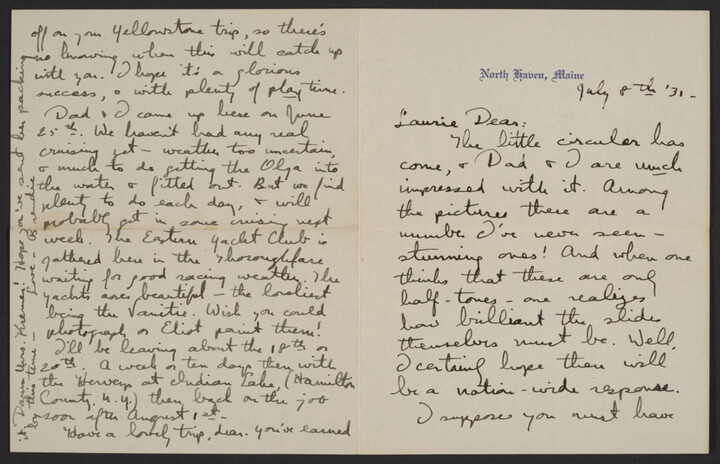 North Haven, Maine
July 8th '31-
Laurie Dear:
The little circular has
come, & Dad & I are much
impressed with it. Among
the pictures there are a
number I've never seen -
stunning ones! And when one
thinks that these are only
half-tones - one realizes
how brilliant the slides
themselves must be. Well,
I certainly hope there will
be a nation-wide response.
I suppose you must have
off on your Yellowstone trip, so there's
no knowing when this will catch up
with you. I hope it's a glorious
success, & with plenty of play time.
Dad & I came up here on June
25th. We haven't had any real
cruising yet - weather too uncertain,
& much to do getting the Olga into
the water & fitted out. But we find
plenty to do each day, & will
probably get in some cruising next
week. The Eastern Yacht Club is
gathered here in the Thoroughfare
waiting for good racing weather. The
yachts are beautiful - the loveliest
being the Vanitie. Wish you could
photograph or Eliot paint them!
I'll be leaving about the 18th or
20th. A week or ten days then with
the Herveys at Indian Lake, (Hamilton
County, N.Y.) then back on the job
soon after August 1st -
Have a lovely trip, dear. You've earned
it. Damn Mrs. ! Hope you've sent her packing
by this time - Love -